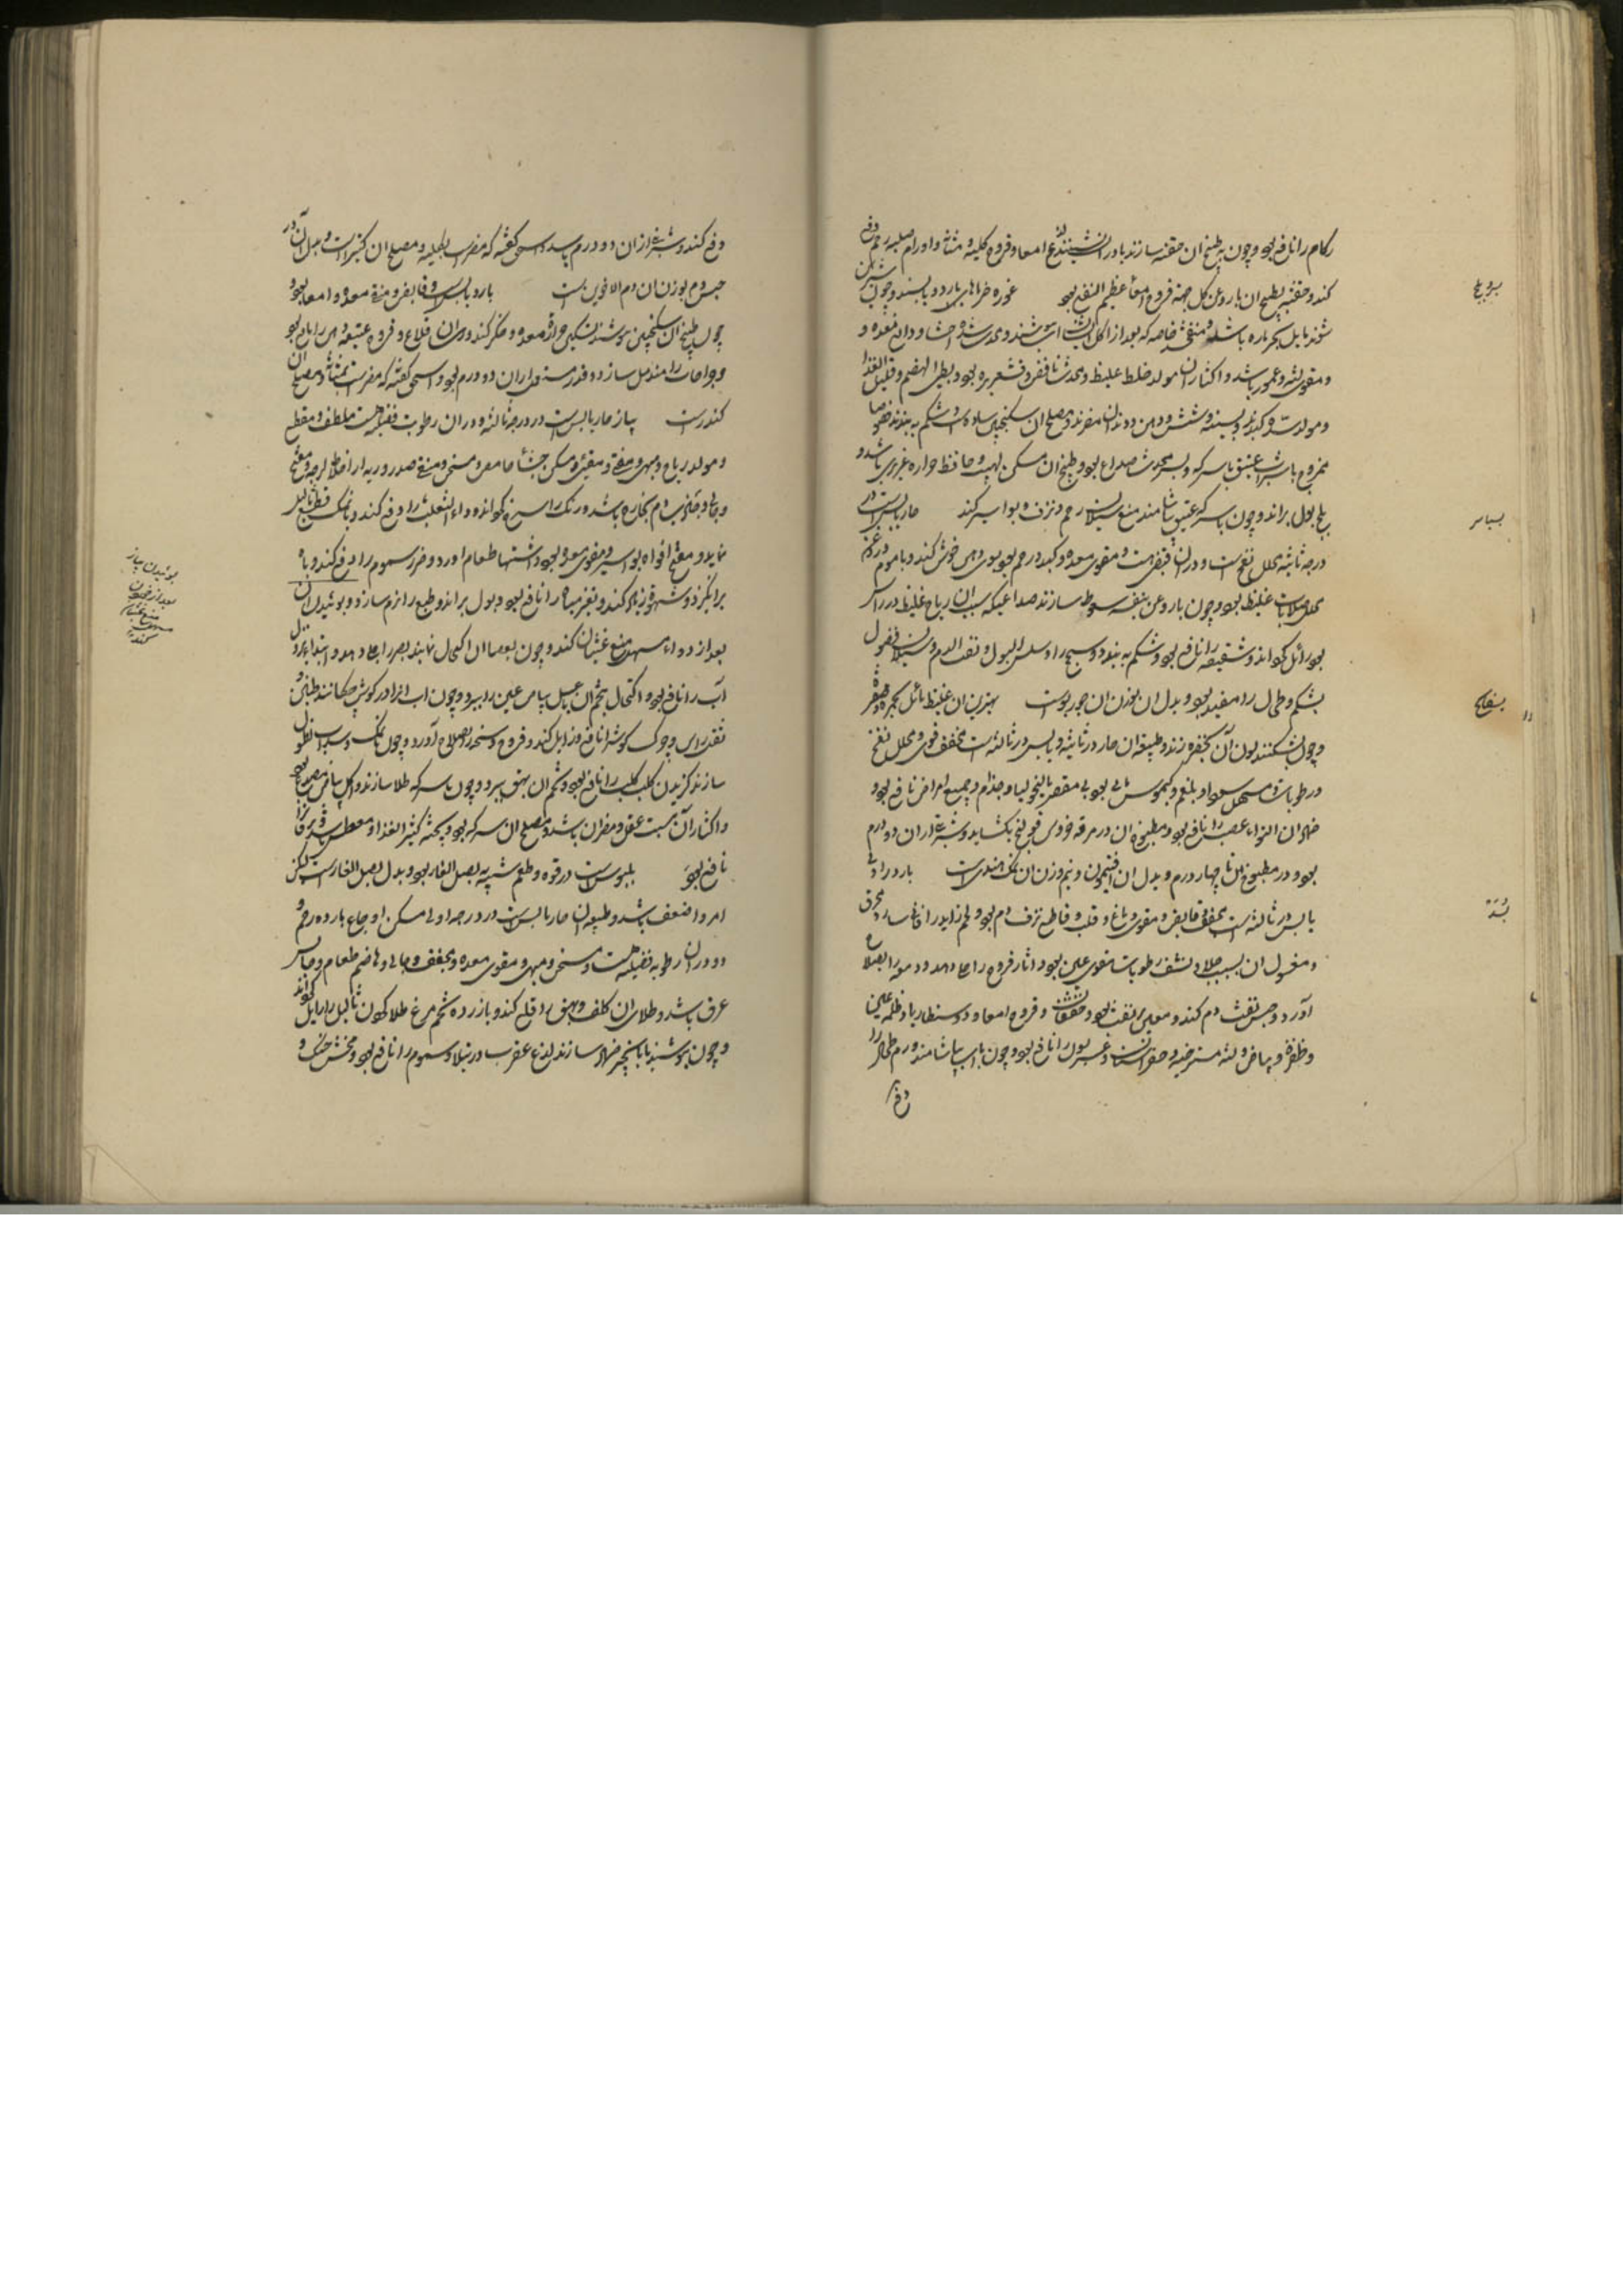 زکام را نافع بود و چون بطبیخ ان حقنه سازند یا در ان نشینند لذع امعا و قروح کلیه و مثانه و اورام صلبه رحم دفع
کند و حقنه بطبیخ ان با روغن گل جهة قروح امعا عظیم النفع بود غوره خرماست بارد و یابس و چون شیرین
شوند مایل بحرارة باشد و منفخ خاصه که بعد از اکل آن آب نوشند و محدث سده احشا و دابغ معده و
و مقوی لثه و عمور باشد و اکثار ان مولد خلط غلیظ و محدث نافض و قشعریره بود و بطی الهضم و قلیل الغذا
و مولد سده کبد و سینه و شش و دهن و دندان را مضر و مصلح ان سکنجبین ساده است و شکم به بندد خصوصا
ممزوج با شراب عتیق یا سرکه و بسر محدث صداع بود و طبیخ ان مسکن لهیب و حافظ حراره غریزی باشد و
بول براند و چون با سرکه عتیق بیاشامند منع سیلان رحم و نزف و بواسیر کند حار یابس است در
درجه ثانیه محلل نفخ است و در ان قبض هست و مقوی معده و کبد و رحم بود و بوی دهن خوش کند و با موم روغن
محلل صلابات غلیظ بود و چون با روغن بنفشه سعوط سازند صداعیکه سبب ان ریاح غلیظ در راس
بود زائل گرداند و شقیقه را نافع بود و شکم به بندد و سحج را و سلس البول و نفث الدم و سیلان فضول
بشکم و طحال را مفید بود و بدل ان بوزن ان جوزبواست بهترین ان غلیظ مائل بحمرة و صفرة
و چون بشکنند لون آن بخضره زند و طبیعة ان حار در ثانیه و یابس در ثالثه است مجفف قوی و محلل نفخ
و رطوبات و مسهل سودا و بلغم و کیموس مائی بود بی مغص و مالیخولیا و جذام و جمیع امراض نافع بود
ضماد ان التواء عصب را نافع بود و مطبوخ ان در مرقه خروس قولنج بکشاید و شربة از ان دو درم
بود و در مطبوخ ان تا چهار درم و بدل ان افتیمون و نیم وزن ان نمک هندی است بارد در اولی
یابس در ثالثه است مجفف و قابض و مقوی دماغ و قلب و قاطع نزف دم بود و لحم زاید را فانی سازد و محرق
و مغسول ان بسبب جلا و نشف رطوبات مقوی عین بود و اثار قروح را جلا دهد و دمعه را بصلاح
آورد و حبس نفث دم کند و معین بر نفث بود و خفقان و قروح امعا و دوسنطاریا و ظلمه عین
و ظفرة و بیاض و لثه مسترخیه و حفر اسنان و عسر بول را نافع بود و چون با اب بیاشامند ورم طحال را
دفع
بروبلح
بسباسه
بسفایج
بُسَّد
دفع کند و شربة از ان دو درم باشد و اسحق گفته که مضر است بکلیه و مصلح ان کثیراست و بدل آن در
حبس دم بوزن ان دم الاخوین است بارد یابس است و قابض و منقی معده و امعا بود و
چون طبیخ ان با سکنجبین نوشند تسکین حرارة معده و جگر کند و درمان قلاع و قروح عتیقه دهن را نافع بود
و جراحات را مندمل سازد و قدر مستعمل از ان دو درم بود و اسحق گفته که مضر است بمثانه و مصلح ان
کندر است پیاز حار یابس است در درجه ثالثه و در ان رطوبت فضلیه هست ملطف و مقطع
و مولد ریاح و مبهی و مفتح و مقیئ و مسکن جشا حامض و مسخن و منقی صدر و ریه از اخلاط لزجه و مفتح
و جالی و جاذب دم بخارج باشد و رنگ را سرخ گرداند و داء الثعلب را دفع کند و با نمک قطع ثآلیل
نماید و مفتح افواه بواسیر و مقوی معده بود و اشتهاء طعام اورد و ضرر سموم را دفع کند و باه
برانگیزد و شهوة را زیاده کند و تغیر میاه را نافع بود و بول براند و طبع را نرم سازد و بوئیدن ان
بعد از دواء مسهل منع غثیان کند و چون بعصاره ان اکتحال نمایند بصر را جلا دهد و ابتداء نزول
آب را نافع بود و اکتحال بتخم ان با عسل بیاض عین را ببرد و چون اب انرا در گوش چکانند طنین و
ثقل راس و چرک گوش را نافع و زایل کند و قروح وسخه را بصلاح آورد و چون با نمک و سداب نطول
سازند گزیدن کلب کلب را نافع بود و تخم ان بهق ببرد و چون با سرکه طلا سازند و اکل بیاض مصدع بود
و اکثار آن مسبت عقل و مضر ان باشد و مصلح ان سرکه بود و پخته کثیر الغذا و معطش باشد و یرقان را
نافع بود بلبوس است در قوه و طعم شبیه به بصل الفار بود و بدل بصل الفار است لیکن
امر و اضعف باشد و طبیعة ان حار یابس است در درجه اولی مسکن اوجاع بارده رحم و
و در ان رطوبة فضلیه هست و مسخن و مبهی و مقوی معده و مجفف و جالی و هاضم طعام و حابس
عرق باشد و طلاء ان کلف و بهق را قلع کند و با زرده تخم مرغ طلا کردن ثآلیل را زایل گرداند
و چون بجوشند و با انجیر ضماد سازند لذع عقرب و رتیلا و سموم را نافع بود و مخشن حنک و
بوئیدن پیاز
بعد از خوردن
مسهل منع غثیان
کند